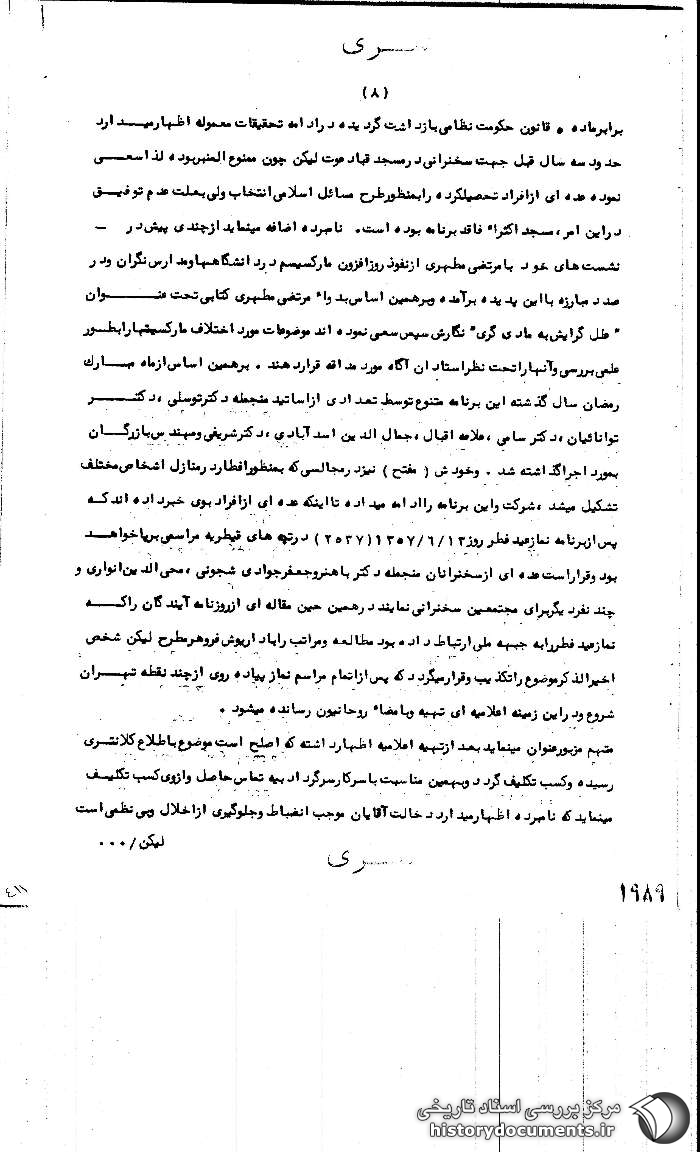 سری
(۸)
برابرماده ۵ قانون حکومت نظامی بازداشت گردیده درادامه تحقیقات معموله اظهارمیدارد
حدود سه سال قبل جهت سخنرانی درمسجد قبادعوت لیکن چون ممنوع المنبربوده لذاسعی
نموده عده ای ازافراد تحصیلکرده رابمنظورطرح مسائل اسلامی انتخاب ولی بعلت عدم توفیق
دراین امر، مسجد اکثرا" فاقد برنامه بوده است. نامبرده اضافه مینماید ازچندی پیش در –
نشست های خود بامرتضی مطهری ازنفوذ روزافزون مارکسیسم دردانشگاهها ومدارس نگران ودر
صدد مبارزه بااین پدیده برآمده وبرهمین اساس بدوا" مرتضی مطهری کتابی تحت عنوان
"علل گرایش به مادی گری" نگارش سپس سعی نموده اند موضوعات مورد اختلاف مارکسیستهارابطور
علمی بررسی وآنهاراتحت نظراستادان آگاه مورد مداقه قراردهند. برهمین اساس ازماه مبارک
رمضان سال گذشته این برنامه متنوع توسط تعدادی ازاساتید منجمله دکترتوسلی، دکتر
توانائیان، دکتر سامی، علامه اقبال، جمال الدین اسدآبادی، دکترشریفی ومهندس بازرگان
بمورد اجراگذاشته شد. وخودش (مفتح) نیزدرمجالسی که بمنظورافطاردرمنازل اشخاص مختلف
تشکیل میشد، شرکت واین برنامه راادامه میداده تااینکه عده ای ازافرادبوی خبرداده اندکه
پس ازبرنامه نمازعید فطر روز۱۳۵۷/۶/۱۳ (۲۵۳۷) درتپه های قیطریه مراسمی برپاخواهد
بود وقراراست عده ای ازسخنرانان منجمله دکتر باهنروجعفرجوادی شجونی، محی الدین انواری و
چند نفردیگربرای مجتمعین سخنرانی نمایند درهمین حین مقاله ای ازروزنامه آیندگان راکه
نمازعید فطررابه جبهه ملی ارتباط داده بود مطالعه ومراتب راباداریوش فروهرمطرح لیکن شخص
اخیرالذکرموضوع راتکذیب وقرارمیگردد که پس ازاتمام مراسم نماز پیاده روی ازچند نقطه تهران
شروع ودراین زمینه اعلامیه ای تهیه وبامضاء روحانیون رسانده میشود.
متهم مزبورعنوان مینماید بعد ازتهیه اعلامیه اظهارداشته که اصلح است موضوع باطلاع کلانتری
رسیده وکسب تکلیف گردد وبهمین مناسبت باسرکارسرگرد ادبیه تماس حاصل وازوی کسب تکلیف
مینماید که نامبرده اظهارمیدارد دخالت آقایان موجب انضباط وجلوگیری ازاخلال وبی نظمی است
لیکن/۰۰۰
سری
۱۹۸۹
مرکز بررسی اسناد تاریخی
historydocuments.ir